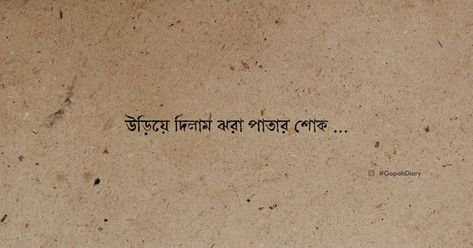 উড়িয়ে দিলাম ঝরা পাতার শোক ...
#GopalsDiary